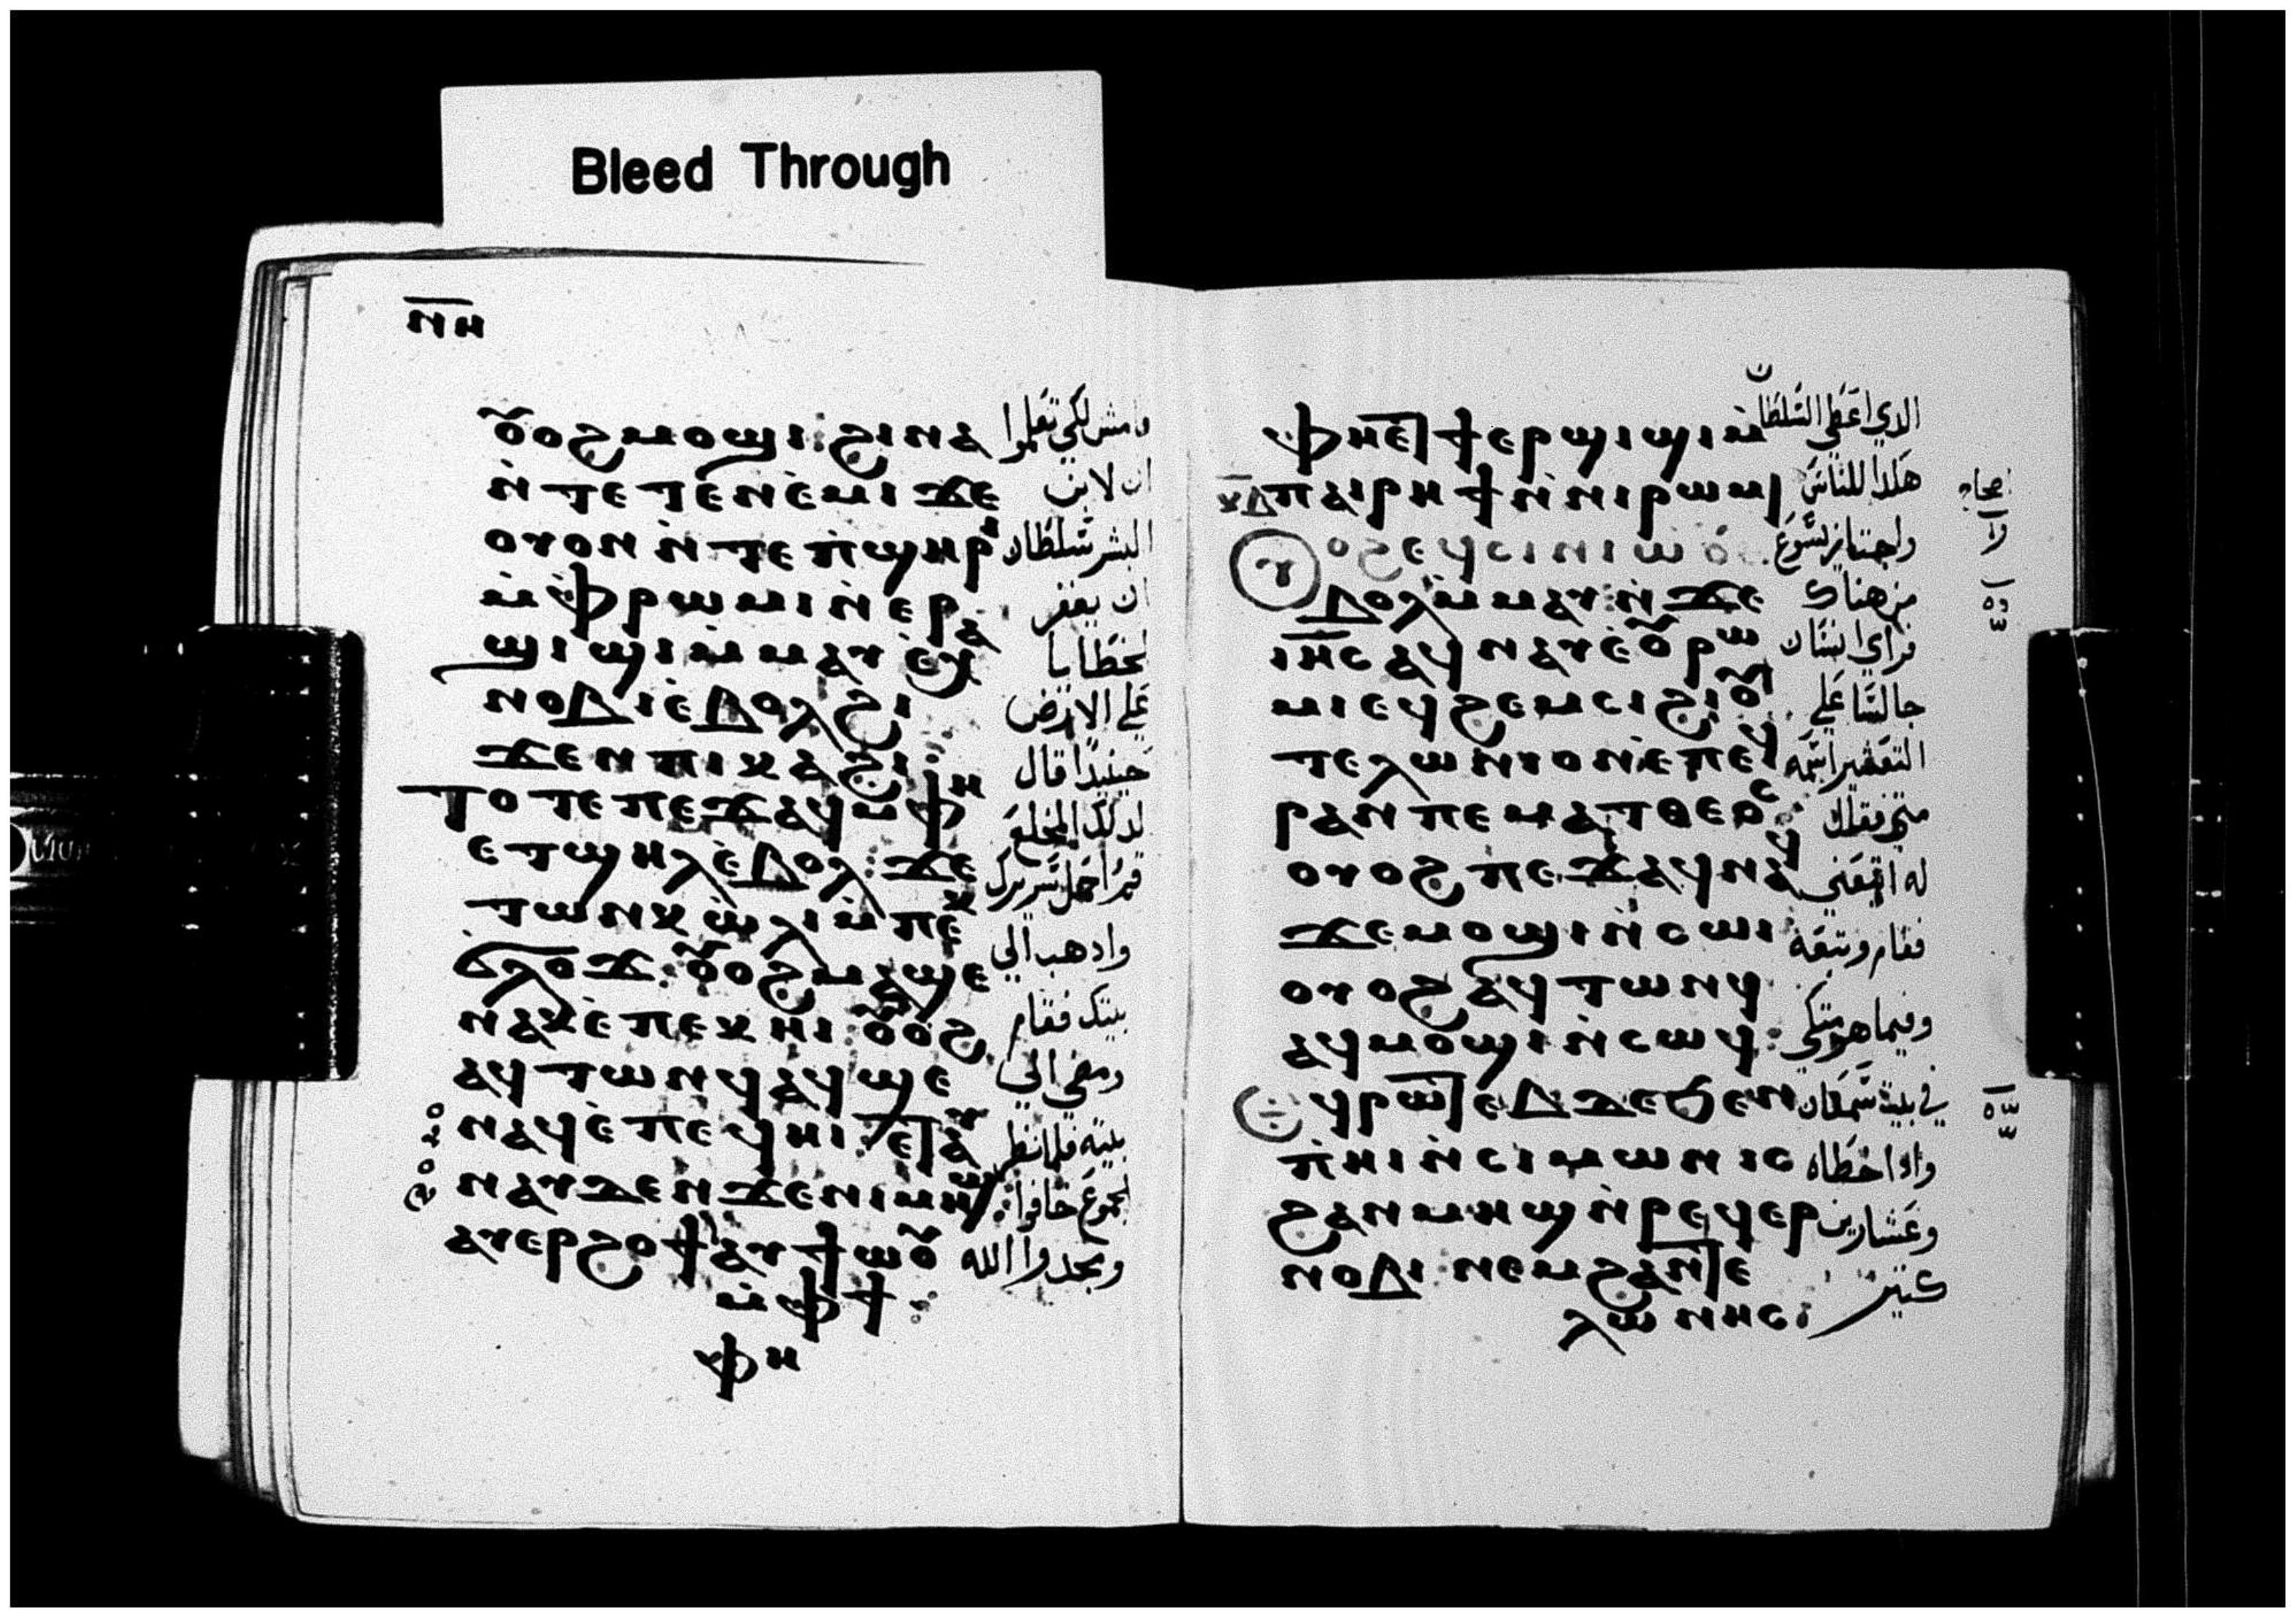 Bleed Through
ⲛⲏ
ⲟⲩⲟϩ ⲙⲟϣⲓ: ϩⲓⲛⲁ
وامش لكي تعلموا
ⲛ̀ⲧⲉⲧⲉⲛⲉ̀ⲙⲓ ϫⲉ
ان لابن
ⲟⲩⲟⲛ ⲛ̀ⲧⲉ ⲡ̀ϣⲏⲣⲓ
البشر سلطان
ⲙ̀ⲫⲣⲱⲙⲓ ⲛ̀ⲉⲣ
ان يغفر
ϣⲓϣⲓ ⲙ̀ⲙⲁⲩ ⲉ̀ⲭⲁ
الخطايا
ⲛⲟⲃⲓ ⲉ̀ⲃⲟⲗ ϩⲓ
على الارض
ϫⲉⲛ ⲡⲓⲕⲁϩⲓ:
حينيدا قال
ⲧⲟⲧⲉ ⲡⲉϫⲁϥ ⲙ̀ⲫⲏ
لدلك المخلع
ⲉⲧϣⲏⲗ ⲉ̀ⲃⲟⲗ: ϫⲉ
قم احمل سريرك
ⲧⲱⲛⲕ ⲱ̀ⲗⲓ ⲙ̀ⲡⲉⲕ
وادهب الي
ϭⲗⲟϫ: ⲟⲩⲟϩ ⲙⲁϣⲉ
ⲛⲁⲕ ⲉ̀ⲡⲉⲕⲏⲓ: ⲟⲩⲟϩ
بيتك فقام
ⲁϥⲧⲱⲛϥ ⲁϥϣⲉ
ومضي الي
ⲛⲁϥ ⲉ̀ⲡⲉϥⲏⲓ: ⲉⲧⲁⲩ
بيته فلما نظر
ⲛⲁⲩ ϫⲉ ⲛ̀ϫⲉⲛⲓⲙⲏϣ
الجموع خافوا
ⲁⲩⲉⲣϩⲟϯ ⲁⲩϯⲱⲟⲩ
ومجدوا الله
ⲙ̀ⲫϯ:
ⲫⲏ
ⲫⲏⲉⲧⲁϥϯⲉⲣϣⲓϣⲓ ⲙ
الدي اعطي السلطان
ⲡⲁⲓⲣⲏϯ ⲛ̀ⲛⲓⲣⲱⲙⲓ
هكدا للناس
ⲟⲩⲟϩ ⲉϥⲥⲓⲛⲓⲱⲟⲩ
واجتاز يسوع
ⲉ̀ⲃⲟⲗ ⲙ̀ⲙⲁⲩ: ⲛ̀ϫⲉ
من هناك
ⲓⲏⲥ ⲁϥⲛⲁⲩ ⲉ̀ⲟⲩⲣⲱ
فراي انسان
ⲙⲓ ⲉϥϩⲉⲙⲥⲓ ϩⲓⲟⲩ
جالسا علي
ⲧⲉⲗⲱⲛⲓⲟⲛ ⲉ̀ⲡⲉϥ
التعشير اسمه
ⲣⲁⲛ ⲡⲉ ⲙⲁⲧⲑⲉⲟⲥ:
متي فقال
ⲟⲩⲟϩ ⲡⲉϫⲁϥ ⲛⲁϥ
له اتبعني
ϫⲉ ⲙⲟϣⲓ ⲛ̀ⲥⲱⲓ:
فقام وتبعه
ⲟⲩⲟϩ ⲁϥⲧⲱⲛϥ
ⲁϥⲙⲟϣⲓ ⲛ̀ⲥⲱϥ:
وفيما هو متكي
ϥⲣⲱⲧⲉⲃ ϫⲉ ϧⲉⲛ
في بيت سمعان
ⲡ̀ⲏⲓ ⲛ̀ⲥⲓⲙⲱⲛ ⲓⲥ
وادا خطاه
ϩⲁⲛⲙⲏϣ ⲛ̀ⲣⲉϥⲉⲣ
وعشارين
ⲛⲟⲃⲓ: ⲛⲉⲙ ϩⲁⲛⲧⲉ
كتير
ⲗⲱⲛⲏⲥ: